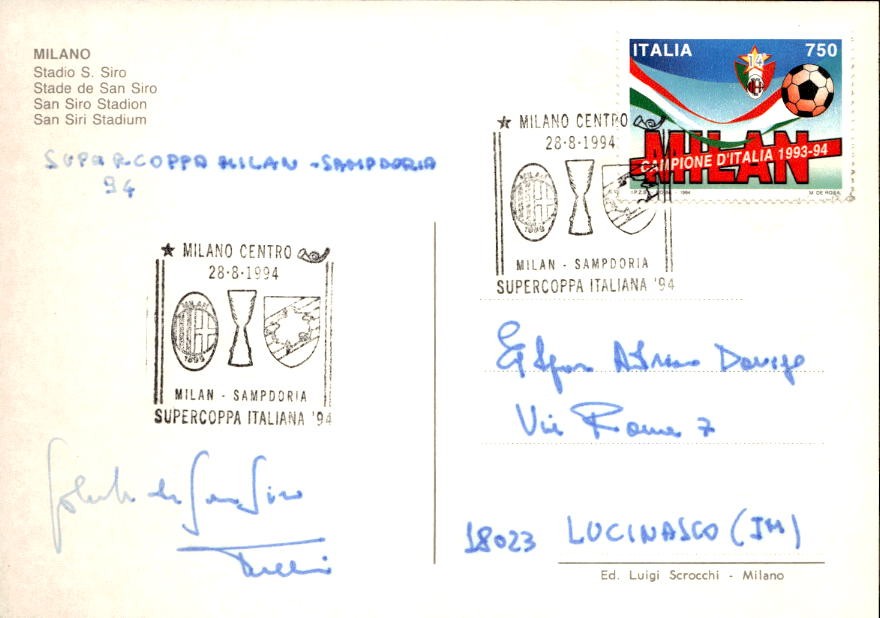 MILANO
Stadio S. Siro
Stade de San Siro
San Siro Stadion
San Siri Stadium
SUPERCOPPA MILAN - SAMPDORIA
94
★ MILANO CENTRO
28-8-1994
MILAN
1899
MILAN - SAMPDORIA
SUPERCOPPA ITALIANA '94
da San Siro
ITALIA 750
14°
MILAN
CAMPIONE D'ITALIA 1993-94
I.P.Z.S. ROMA - 1994 M. DE ROSA
★ MILANO CENTRO
28-8-1994
MILAN
1899
MILAN - SAMPDORIA
SUPERCOPPA ITALIANA '94
Davide
Via Roma 7
18023 LUCINASCO (IM)
Ed. Luigi Scrocchi - Milano